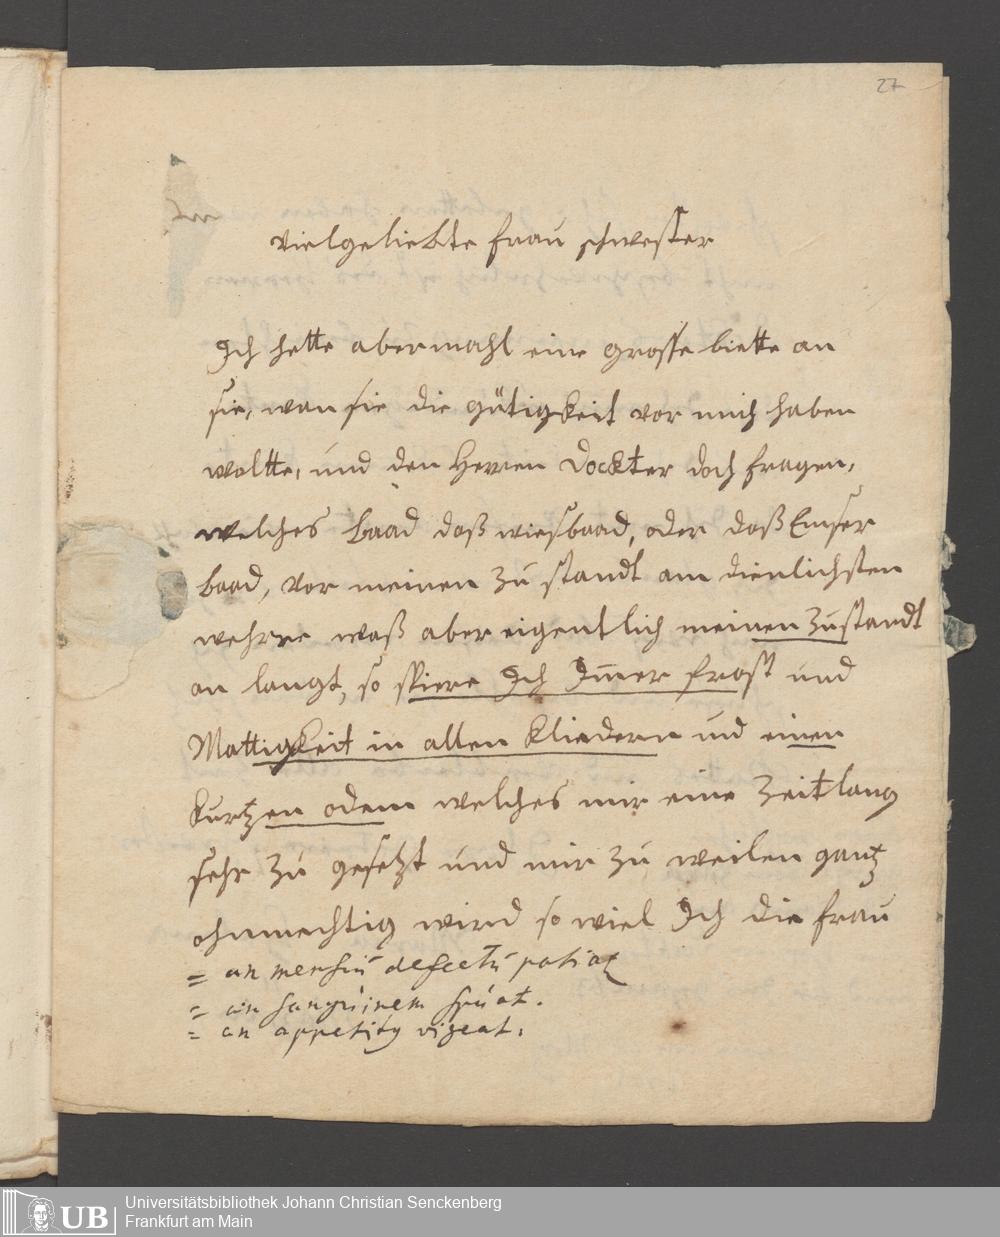 27
vielgeliebte frau schwester
Ich hette abermahl eine grosse biette an
sie, wan sie die gütigkeit vor mich haben
woltte, und den Herren Dockter doch fragen,
welches baad daß wiesbaad, oder daß Emser
baad, vor meinen zu standt am dienlichsten
wehrre waß aber eigentlich meinen zustandt
an langt, so spiere Ich Im̅er frost und
Mattigkeit in allen Kliedern und einen
Kurtzen odem welches mir eine Zeitlang
sehr zu gesetzt und mir zu weilen gantz
ohnmechtig wird so viel Ich die frau
= an mensiū defectū patiat
= an sanguinem spuat.
= an appetitq vigeat.
UB Universitätsbibliothek Johann Christian Senckenberg
Frankfurt am Main